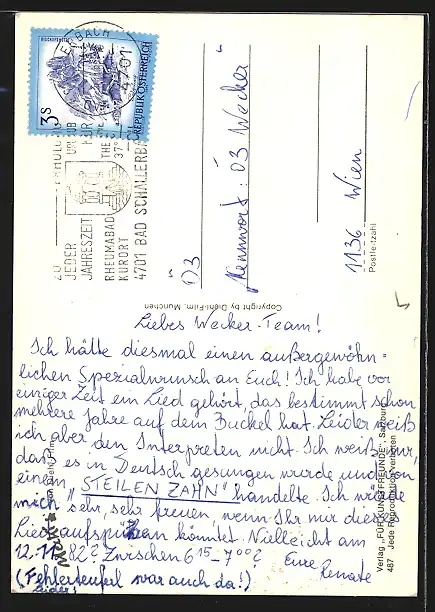 BISCHOFSMÜTZE
3S
REPUBLIK ÖSTERREICH
4701
JEDER
JAHRESZEIT
RHEUMABAD
KURORT
4701 BAD SCHALLERBACH
Ö3
Kennwort: Ö3 Wecker
1136 Wien
Postleitzahl
Copyright by Diehl-Film, München
Liebes Wecker-Team!
Ich hätte diesmal einen außergewöhn=
lichen Spezialwunsch an Euch! Ich habe vor
einiger Zeit ein Lied gehört, das bestimmt schon
mehrere Jahre auf dem Buckel hat. Leider weiß
ich aber den Interpreten nicht. Ich weiß nur,
daß es in Deutsch gesungen wurde und von
einem „STEILEN ZAHN" handelte. Ich würde
mich sehr, sehr freuen, wenn Ihr mir dieses
Lied aufspüren könntet. Vielleicht am
12.11.82? Zwischen 6 15 - 7 00?
Eure Renate
(Fehlerteuferl war auch da!)
leider
Verlag „FÜR KUNSTFREUNDE", Salzburg
487 Jede Reproduktion verboten